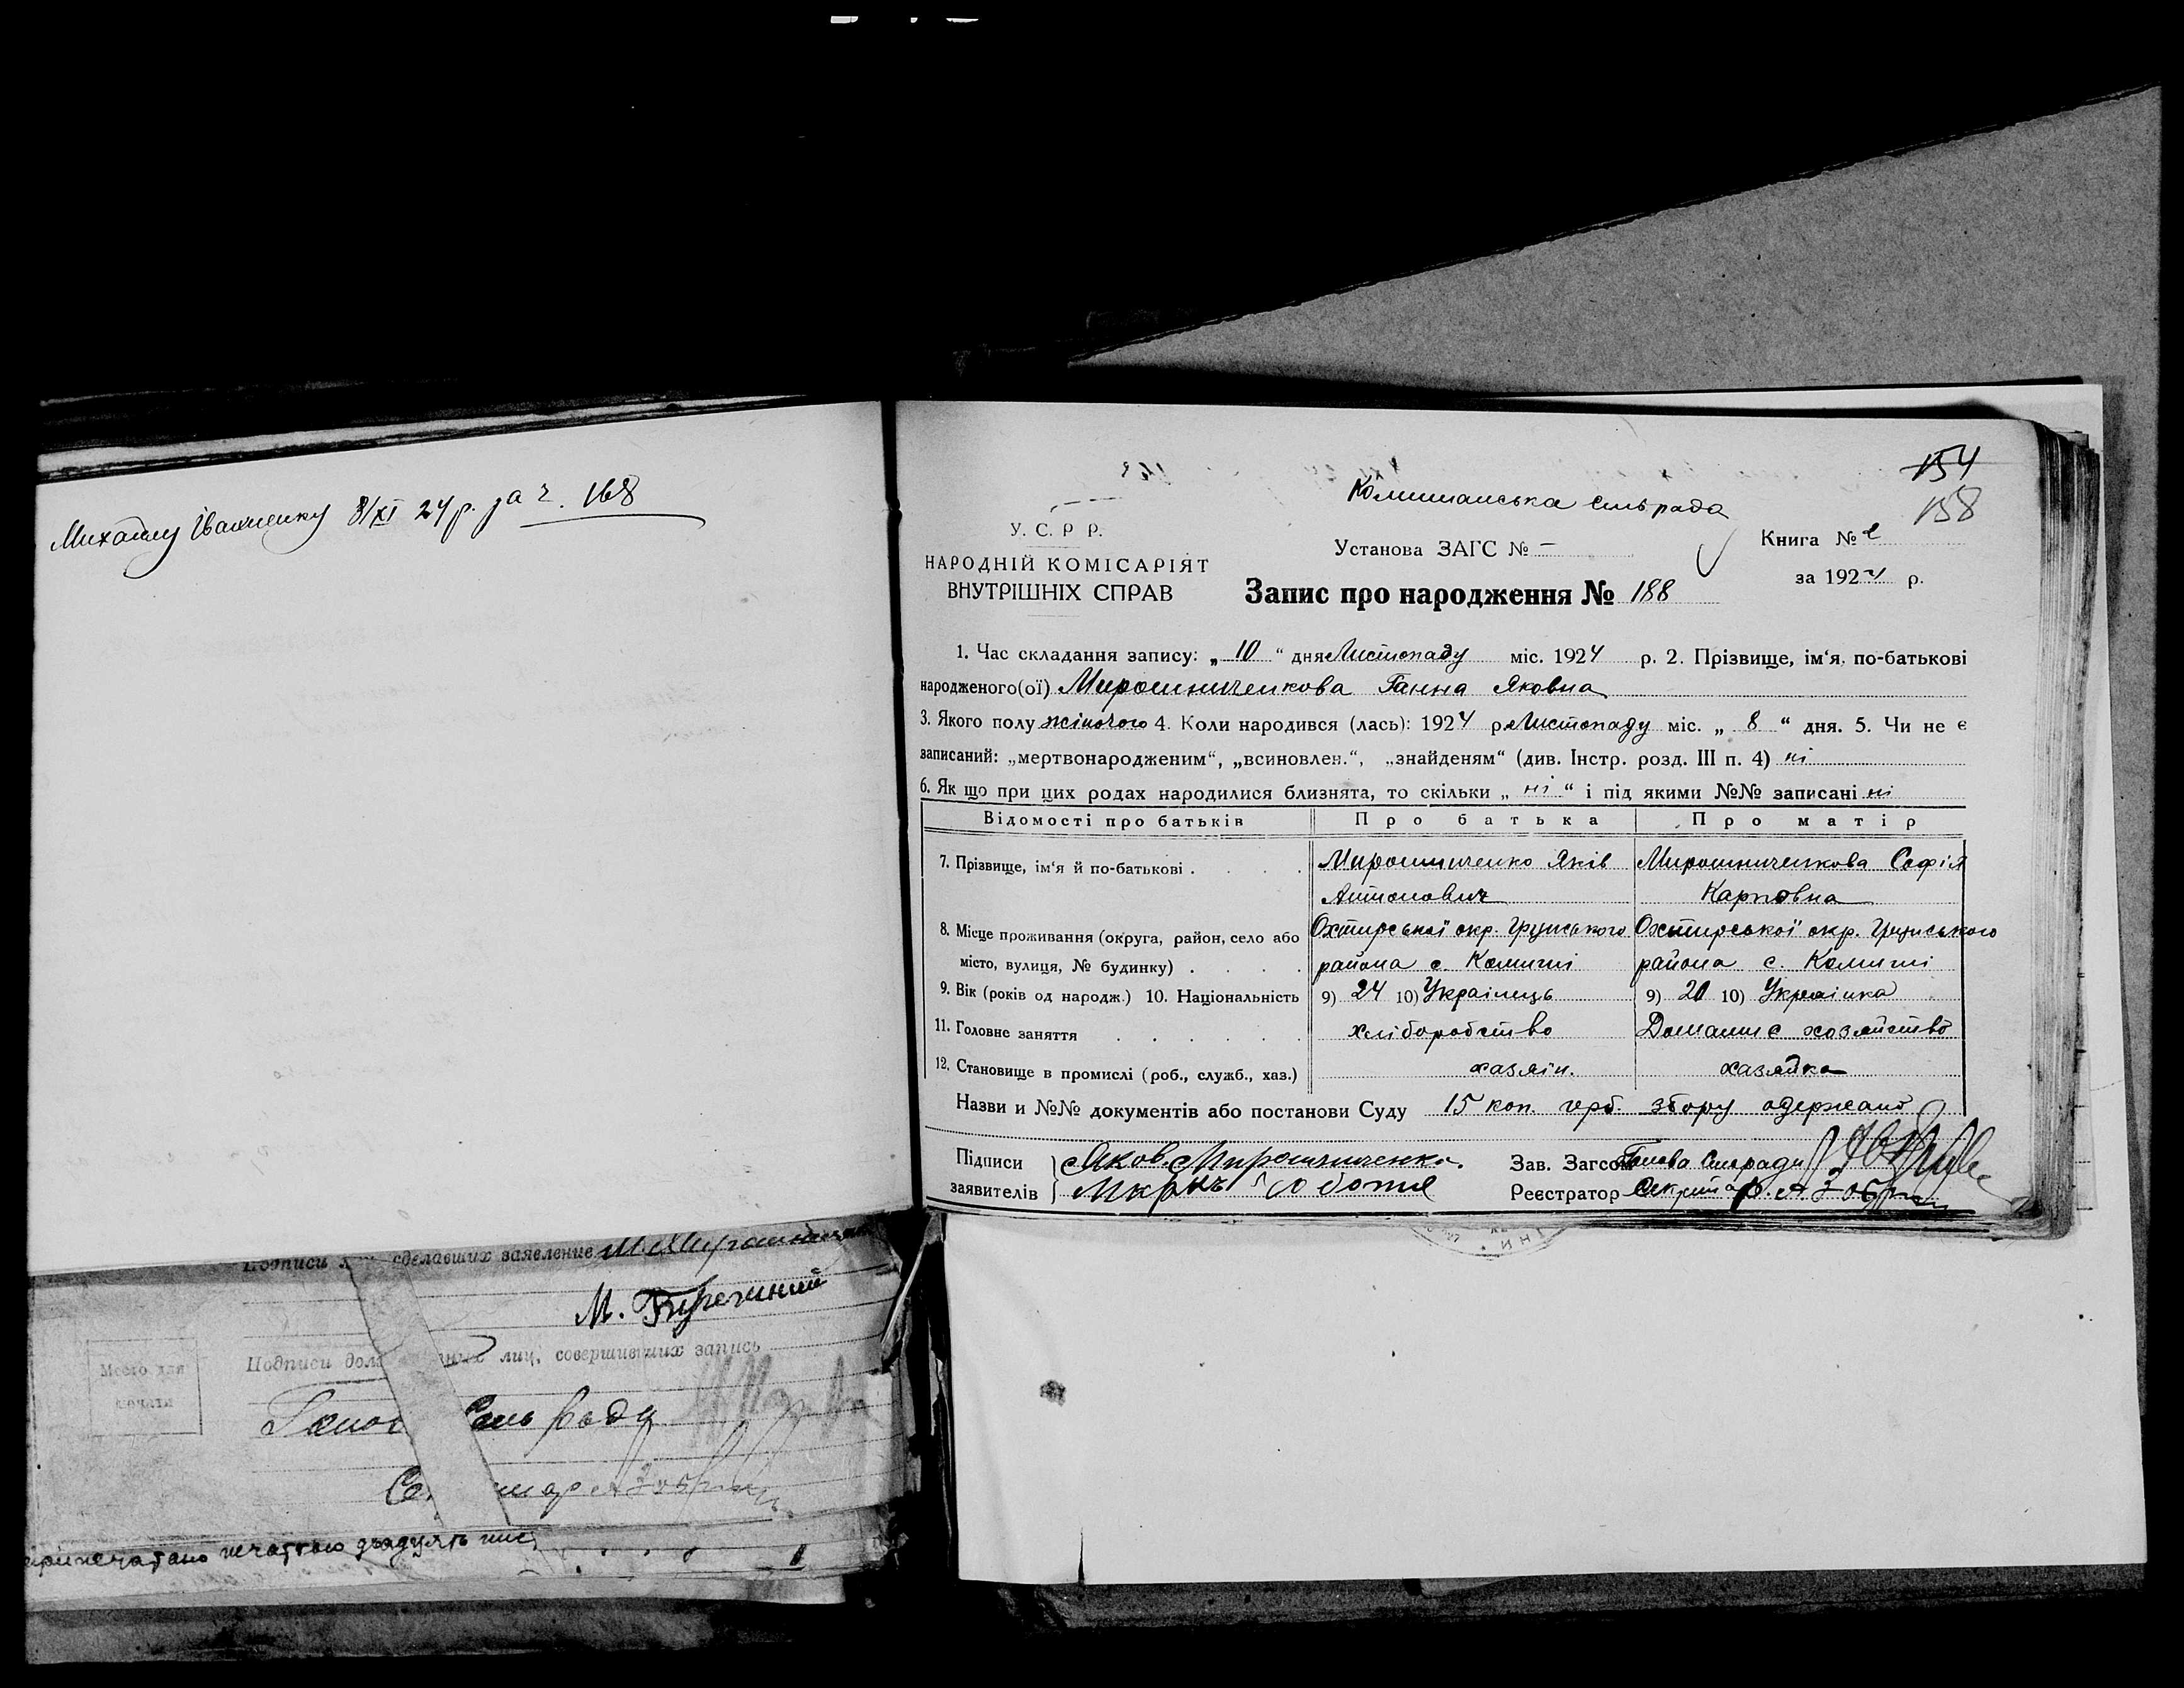 Михайлу Іванченку 8/XI 24 р. за ч. 168
154
158
Комишанська сильрада
У. С. Р Р.
Установа ЗАГС № –
Книга №
НАРОДНІЙ КОМІСАРІЯТ
ВНУТРІШНІХ СПРАВ
за 1924 р.
Запис про народження № 188
1. Час складання запису: „ 10 “ дня Листопаду міс. 1924 р. 2. Прізвище, ім‘я, по-батькові
народженого(ої) Мирошниченкова Ганна Яковна
3. Якого полу жіночого 4. Коли народився (лась): 1924 р. Листопаду міс. „ 8 “ дня. 5. Чи не є
записаний: „мертвонародженим“, „всиновлен.“, „знайденям“ (див. Інстр. розд. III п. 4) ні
6. Як що при цих родах народилися близнята, то скільки „ ні “ і під якими №№ записані ні
Відомості про батьків Про батька Про матір
7. Прізвище, ім‘я й по-батькові . . . . Мирошниченко Яків Мирошниченкова Софія
Антонович Карповна
8. Місце проживання (округа, район, село або Охтирської окр. Грунського Охтирської окр. Грунського
місто, вулиця, № будинку) . . . . района с. Комиші района с. Комиші
9. Вік (років од народж.) 10. Національність 9) 24 10) Українець 9) 20 10) Українка
11. Головне заняття . . . . . . хліборобство Домашнє хозяйство
12. Становище в промислі (роб., служб., хаз.) хазяїн. хазяйка
Назви и №№ документів або постанови Суду 15 коп. герб. збору одержано
Підписи Яков Мирошниченко. Зав. Загсом Голова Сильради
заявителів Реєстратор Секретар. А
Подписи сделавших заявление М Мирошниченко
М.
Место для
печати
Подписи лиц, совершивших запись
Сель Рады
припечатано печаткою двадцять